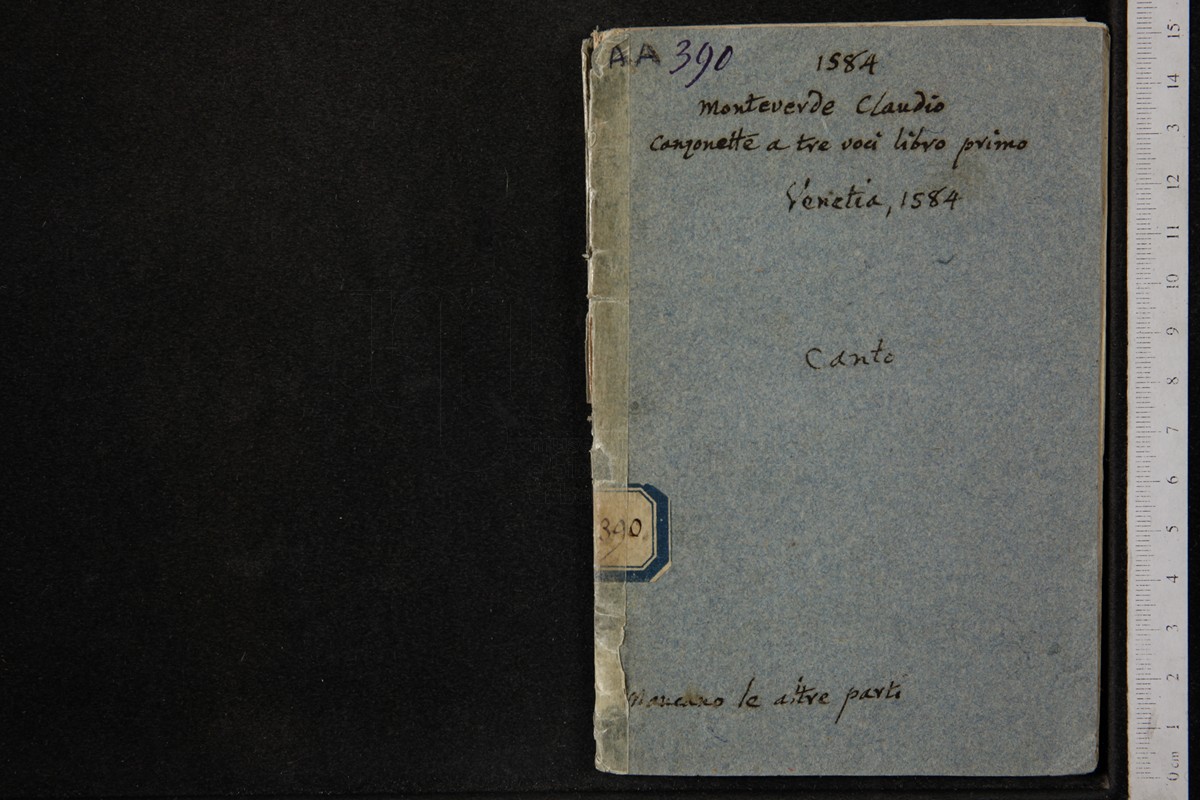 AA 390
1584
Monteverde Claudio
Canzonette a tre voci libro primo
Venetia, 1584
Canto
390
Mancano le altre parti
15
14
13
12
11
10
9
8
7
6
5
4
3
2
1
0 cm